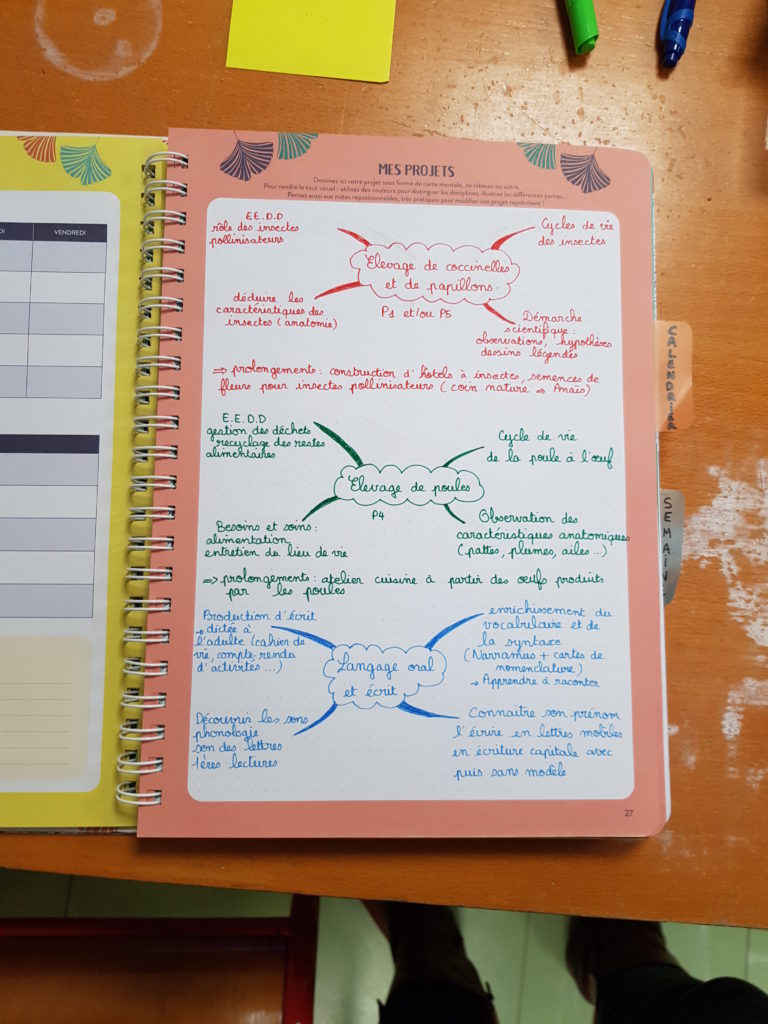 DI
VENDREDI
MES PROJETS
Dessinez ici votre projet sous forme de carte mentale, de tableau ou autre.
Pour rendre le tout visuel : utilisez des couleurs pour distinguer les disciplines, illustrez les différentes parties...
Pensez aussi aux notes repositionnables, très pratiques pour modifier son projet rapidement !
E.E.D.D
rôle des insectes
pollinisateurs
Cycles de vie
des insectes
Elevage de coccinelles
et de papillons.
P1 et/ou P5
déduire les
caractéristiques des
insectes (anatomie)
Démarche
scientifique :
observations, hypothèses
dessins légendés
⇒ prolongements : construction d'hôtels à insectes, semences de
fleurs pour insectes pollinisateurs (coin nature ⇒ Anaïs)
E.E.D.D
gestion des déchets
recyclage des restes
alimentaires
Cycle de vie
de la poule à l'œuf
Elevage de poules
P4
Besoins et soins :
alimentation
entretien du lieu de vie
Observation des
caractéristiques anatomiques
(pattes, plumes, ailes ...)
⇒ prolongements : atelier cuisine à partir des œufs produits
par les poules
Production d'écrit
→ dictée à
l'adulte (cahier de
vie, compte-rendu
d'activités ...)
enrichissement du
vocabulaire et de
la syntaxe
(Narramus + cartes de
nomenclature)
→ Apprendre à raconter
Langage oral
et écrit
Découvrir les sons
phonologie
son des lettres
1ères lectures
Connaitre son prénom
l'écrire en lettres mobiles
en écriture capitale avec
puis sans modèle
27
CALENDRIER
SEMAINE